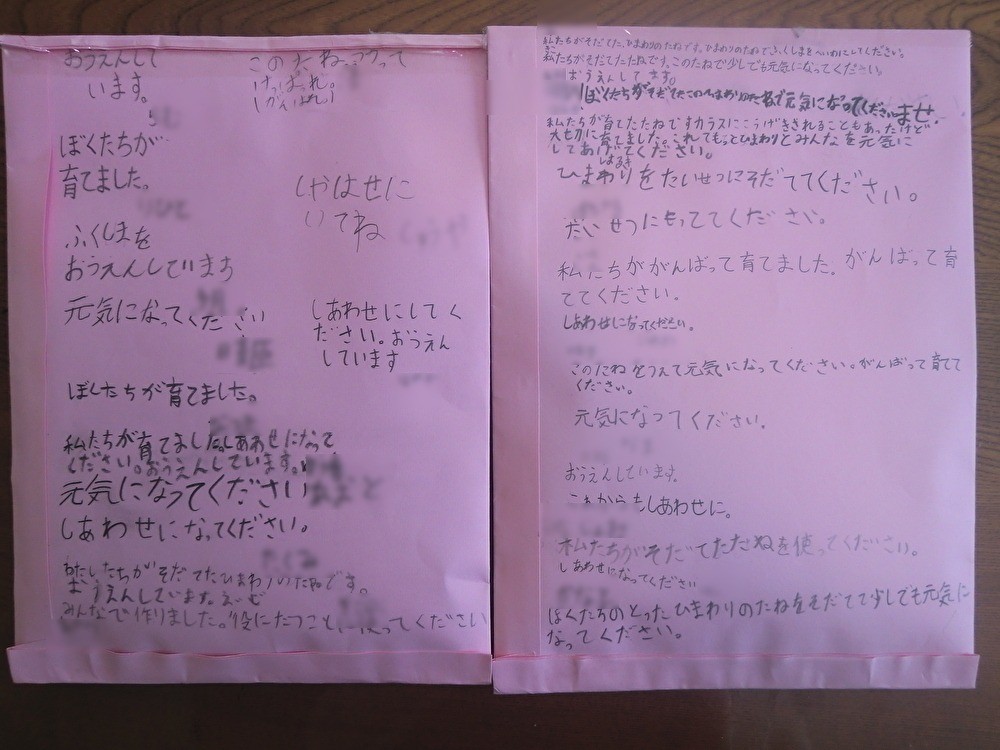 おうえんして
います。
ぼくたちが
育てました。
ふくしまを
おうえんしています
元気になってください
ぼくたちが育てました。
私たちが育てました。しあわせになって
ください。おうえんしています。
元気になってください
しあわせになってください。
わたしたちがそだてたひまわりのたねです。
おうえんしています。
みんなで作りました。役にたつことに使ってください
このたねつかって
けっぱれ。
(がんばれ)
しやはせに
いてね
しあわせにしてく
ださい。おうえん
しています
私たちがそだてた、ひまわりのたねです。ひまわりのたねでふくしまをへいわにしてください。
私たちがそだてたたねです。このたねで少しでも元気になってください。
おうえんしてます。
ぼくたちがそだてたこのひまわりのたねで元気になってくださいませ。
私たちが育てたたねですカラスにこうげきされることもあったけど
大切に育てました。これでもっとひまわりとみんなを元気に
してあげてください。
ひまわりをたいせつにそだててください。
だいせつにもっててください。
私たちががんばって育てました。がんばって育
ててください。
しあわせになってください。
このたねをうえて元気になってください。がんばって育てて
ください。
元気になってください。
おうえんしています。
これからもしあわせに。
私たちがそだてたたねを使ってください。
しあわせになってください
ぼくたちのとったひまわりのたねをそだてて少しでも元気に
なってください。